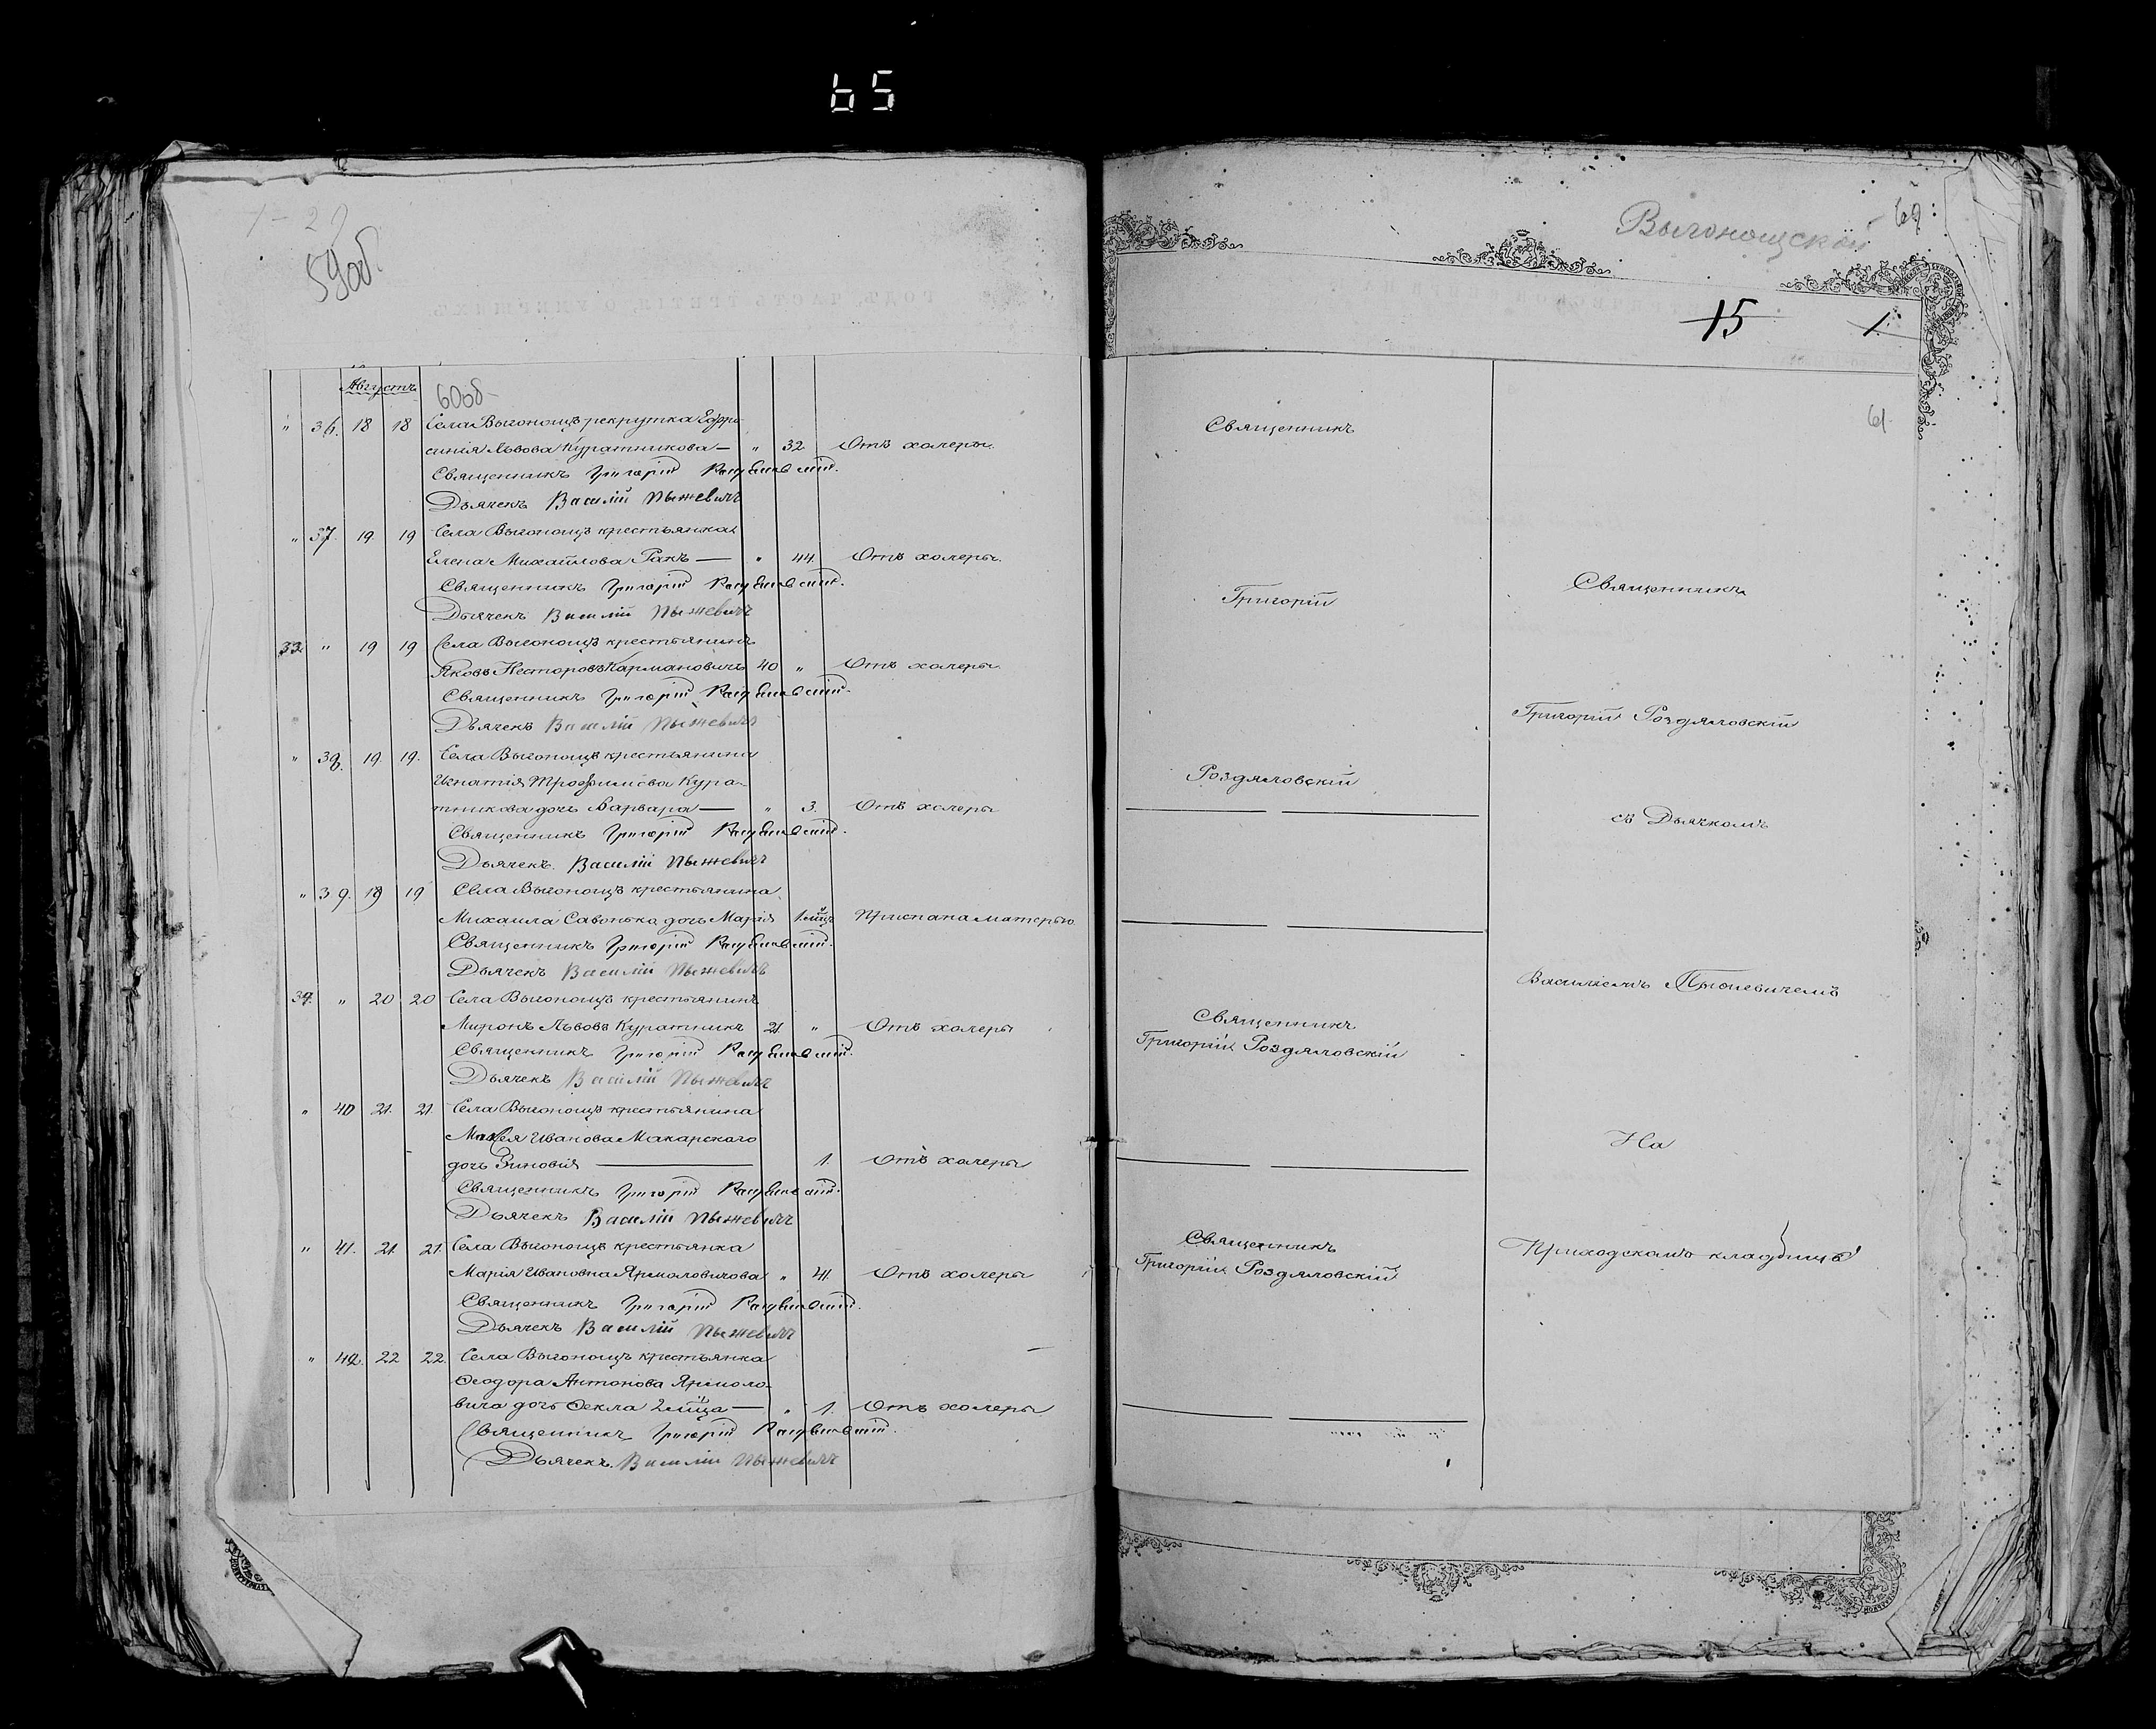 65
59об.
Выгонощской
15 1.
61
Августъ
60об
" 36. 18 18 Села Выгонощъ рекрутка Евфро-
синія Львова Куратникова — " 32 Отъ холеры.
Священникъ Григорій Роздяловскій.
Дьячекъ Василій Пыжевичъ
" 37. 19 19 Села Выгонощъ крестьянка
Елена Михайлова Ракъ — " 44. Отъ холеры.
Священникъ Григорій Роздяловскій.
Дьячекъ Василій Пыжевичъ
33. " 19 19 Села Выгонощъ крестьянинъ
Яковъ Несторовъ Кармановичъ 40 " Отъ холеры.
Священникъ Григорій Роздяловскій.
Дьячекъ Василій Пыжевичъ
" 38. 19. 19. Села Выгонощъ крестьянина
Игнатія Трофимова Кура-
тникова дочь Варвара — " 3. Отъ холеры
Священникъ Григорій Роздяловскій.
Дьячекъ Василій Пыжевичъ
" 39. 19 19 Села Выгонощъ крестьянина
Михаила Савонька дочь Марія 1.мца Приспана матерью.
Священникъ Григорій Роздяловскій.
Дьячекъ Василій Пыжевичъ
34. " 20 20 Села Выгонощъ крестьянинъ
Миронъ Львовъ Куратникъ 21 " Отъ холеры
Священникъ Григорій Роздяловскій.
Дьячекъ Василій Пыжевичъ
" 40 21. 21. Села Выгонощъ крестьянина
Иванова Макарского
дочь Зиновія — 1. Отъ холеры
Священникъ Григорій Роздяловскій.
Дьячекъ Василій Пыжевичъ
" 41. 21. 21. Села Выгонощъ крестьянка
Марія Ивановна Ярмоловичова " 41. Отъ холеры
Священникъ Григорій Роздяловскій.
Дьячекъ Василій Пыжевичъ
" 42. 22 22. Села Выгонощъ крестьянка
Ѳеодора Антонова Ярмоло-
вича дочь Ѳекла 2 мца — " 1. Отъ холеры
Священникъ Григорій Роздяловскій.
Дьячекъ Василій Пыжевичъ
Священникъ
Григорій
Роздяловскій
Священникъ
Григорій Роздяловскій
Священникъ
Григорій Роздяловскій
Священникъ
Григорій Роздяловскій
съ Дьячкомъ
Василіемъ Пыжевичемъ
На
Приходскомъ кладбищѣ